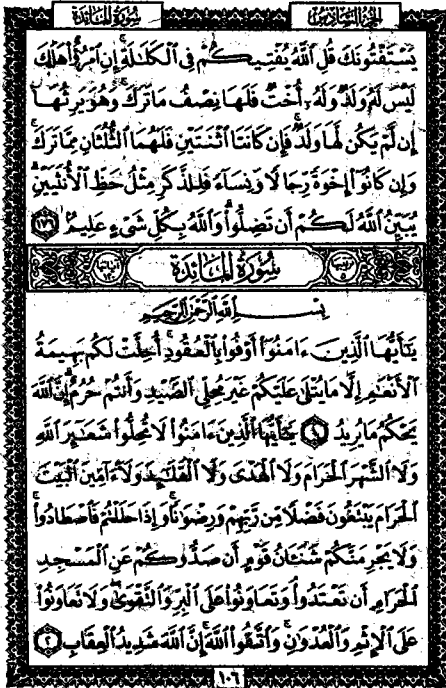 سُورَةُ المَائـِدَةِ الجُزءُ السَّادِسُ
يَسْتَفْتُونَكَ قُلِ ٱللَّهُ يُفْتِيكُمْ فِى ٱلْكَلَٰلَةِ ۚ إِنِ ٱمْرُؤٌا۟ هَلَكَ
لَيْسَ لَهُۥ وَلَدٌ وَلَهُۥٓ أُخْتٌ فَلَهَا نِصْفُ مَا تَرَكَ ۚ وَهُوَ يَرِثُهَآ
إِن لَّمْ يَكُن لَّهَا وَلَدٌ ۚ فَإِن كَانَتَا ٱثْنَتَيْنِ فَلَهُمَا ٱلثُّلُثَانِ مِمَّا تَرَكَ ۚ
وَإِن كَانُوٓا۟ إِخْوَةً رِّجَالًا وَنِسَآءً فَلِلذَّكَرِ مِثْلُ حَظِّ ٱلْأُنثَيَيْنِ ۗ
يُبَيِّنُ ٱللَّهُ لَكُمْ أَن تَضِلُّوا۟ ۗ وَٱللَّهُ بِكُلِّ شَىْءٍ عَلِيمٌۢ ١٧٦
سُورَةُ المَائـِدَةِ
بِسْمِ ٱللَّهِ ٱلرَّحْمَٰنِ ٱلرَّحِيمِ
يَٰٓأَيُّهَا ٱلَّذِينَ ءَامَنُوٓا۟ أَوْفُوا۟ بِٱلْعُقُودِ ۚ أُحِلَّتْ لَكُم بَهِيمَةُ
ٱلْأَنْعَٰمِ إِلَّا مَا يُتْلَىٰ عَلَيْكُمْ غَيْرَ مُحِلِّى ٱلصَّيْدِ وَأَنتُمْ حُرُمٌ ۗ إِنَّ ٱللَّهَ
يَحْكُمُ مَا يُرِيدُ ١ يَٰٓأَيُّهَا ٱلَّذِينَ ءَامَنُوا۟ لَا تُحِلُّوا۟ شَعَٰٓئِرَ ٱللَّهِ
وَلَا ٱلشَّهْرَ ٱلْحَرَامَ وَلَا ٱلْهَدْىَ وَلَا ٱلْقَلَٰٓئِدَ وَلَآ ءَآمِّينَ ٱلْبَيْتَ
ٱلْحَرَامَ يَبْتَغُونَ فَضْلًا مِّن رَّبِّهِمْ وَرِضْوَٰنًا ۚ وَإِذَا حَلَلْتُمْ فَٱصْطَادُوا۟ ۚ
وَلَا يَجْرِمَنَّكُمْ شَنَـَٔانُ قَوْمٍ أَن صَدُّوكُمْ عَنِ ٱلْمَسْجِدِ
ٱلْحَرَامِ أَن تَعْتَدُوا۟ ۘ وَتَعَاوَنُوا۟ عَلَى ٱلْبِرِّ وَٱلتَّقْوَىٰ ۖ وَلَا تَعَاوَنُوا۟
عَلَى ٱلْإِثْمِ وَٱلْعُدْوَٰنِ ۚ وَٱتَّقُوا۟ ٱللَّهَ ۖ إِنَّ ٱللَّهَ شَدِيدُ ٱلْعِقَابِ ٢
١٠٦